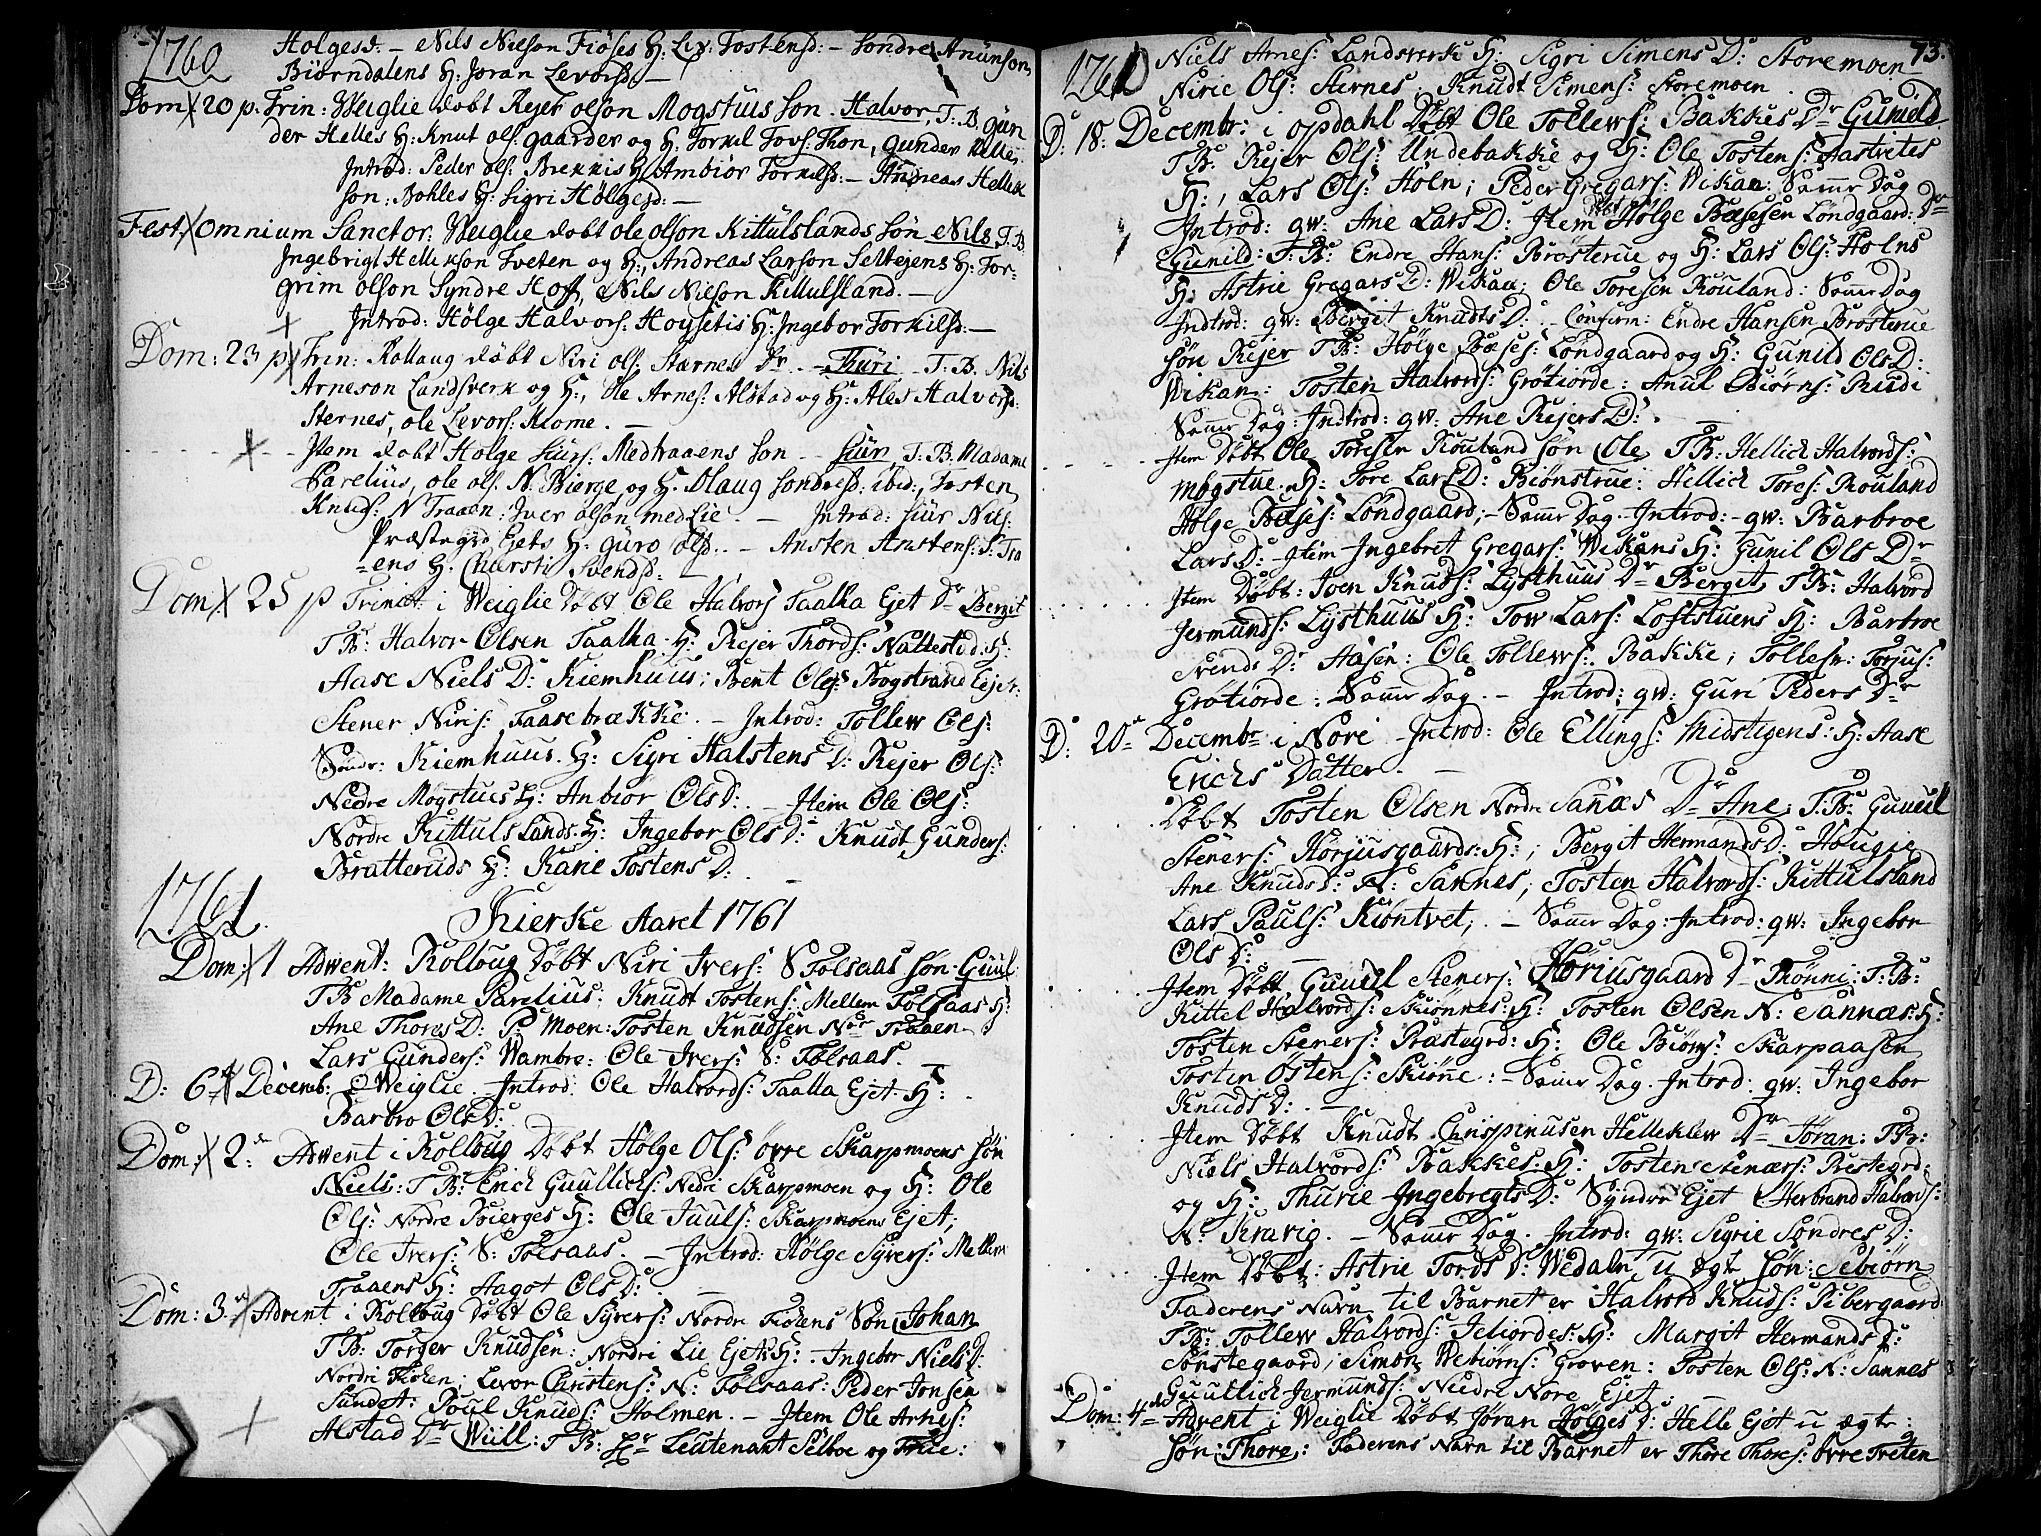 1760
Holgesd: – Nils Nilson Fiøses H: Liv: Tostensd: – Sondre Anunson
Biørndalens H: Joran Levorsd: –
Dom 20 p. Trin: Weiglie døbt Rejer olson Mogstuis son – Halvor, T.B. Gun
der Helles H: Knut ols: gaarder og H: Torkil Tovs: Thon, gunder Helle
Introd: Peder ols: Brekkis H: Ambiør Torkilsd: – Andreas Hellek
son: Bohles H: Sigri Holgesd: –
Fest: Omnium Sanctor: Weiglie døbt ole olson Kittulslands søn Nils T.B.
Ingebrigt Hellekson Tveten og H:, Andreas Larson Seltejens H: Tor-
grim olson Syndre Hoff, Nils Nilson Kittulsland. –
Introd: Hølge Halvors: Høysetis H: Ingebor Torkilsd: –
Dom: 23 p Trin: Rollaug døbt Niri ols: Stærnes Dr – Thuri – T.B. Nils
Arneson Landsverk og H:, Ole Arnes: Alstad og H: Ales Halvorsd:
Sternes, ole Levors: Kome. –
Item døbt Holge Siurs: Medtraaens son – Siur, T.B. Madame
Parelius, ole ols: N: Bierge og H: Olaug Sondresd: ibid:, Tosten
Knuds: N Traaen: Iver olson medLie. – Introd: Siur Nils:
Præstegrd Ejets H: Guro olsd: – Ansten Anstens: S: Tra
-ens H: Chirsti Svendsd: –
Dom 25 p Trinit: i Weiglie Døbt Ole Halvors Taalka Ejet Dr Bergit
T B: Halvor Olsen Taalka: H: Rejer Thords: Nattestid: H:
Aase Niels D: Kiemhuus; Bent Ols: Bogstrand Eje:
Stener Niris: Taasebrække. – Introd: Tollew Ols:
Søndr: Kiemhuus. H: Sigri Halstens D: Rejer Ols:
Nedre Mogstus H: Anbior Ols D: – Item Ole Ols:
Nordre Kittulslands: H: Ingebor Ols D: Knudt Gunders:
Bratteruds H: Karie Tostens D: –
1761
Kierke Aaret 1761
Dom: 1 Adwent: Rolloug Døbt Niri Ivers: S Følsaas søn Guul
T B Madame Parelius; Knudt Tostens: Mellem Følsaas H:
Ane Thores D: P: Moen: Tosten Knudsen Nor Traaen
Lars Gunders: Wambre: Ole Ivers: S: Følsaas.
D: 6 Decemb: i Weiglie. Introd: Ole Halvords: Taalka Ejet H:
Barbro Ols D:
Dom: 2 Adwent i Rolloug Døbt Hølge Ols: Øvre Skarpmoens søn
Niels: T B: Erich Guullichs: Nedre Skarpmoen og H: Ole
Ols: Nordre Bierges H: Ole Juuls: Skarpmoens Ejet;
Ole Ivers: S: Følsaas. – Introd: Hølge Syvers: Mellem
Traaens H: Aagot Ols D: –
Dom: 3 Advent i Rolloug Døbt Ole Syvers: Nordre Fiøsens Søn Johan
T B: Torger Knudsen: Nordre Lie Ejet H: Ingebor Niels D:
Nordre Fiøsen; Levor Christens: N: Følsaas: Peder Jonsen
Sundet: Poul Knuds: Holmen. – Item Ole Arnes:
Alstad Dr Wiill: T B: Hr Leutenant Selboe og Frue:
73.
1761 Niels Arnes: Landsverk H: Sigri Simens D: Storemoen
Nirie Ols: Sternes; Knudt Simens: Storemoen.
D: 18: Decembr: i Opdahl Døbt Ole Tollews: Bakkes Dr Gunild
T B: Rejer Ols: Undebakke og H: Ole Tostens: Aastvetes
H:, Lars Ols: Holn; Peder Gregars: Wikan: Samr Dag
Introd: qw: Ane Lars D: Item Døbt Hølge Bæsesen Løndgaard: Dr
Gunild: T. B: Endre Hans: Brosterue og H: Lars Ols: Holns
H: Astrie Gregars D: Wikan; Ole Toresen Rouland: Samr Dag
Indtrod: qw: Bergit Knudts D: – Confirm: Endre Hansen Brosterue
søn Rejer T B: Hølge Bæses: Løndgaard og H: Gunild Ols D:
Wikan: Tosten Halvords: Grøtiorde: Anul Biørns: Rudi
Samr Dag: Indtrod: qw: Ane Rejers D:
Item Døbt Ole Toresen Rouland søn Ole T B: Hellich Halvords:
Mogstue. H: Tore Lars D: Biønstrue: Hellich Tores: Rouland
Hølge Bæses: Løndgaard; – Samr Dag. Introd: – qw: Barbroe
Lars D: Item Ingebret Gregars: Wikans H: Gunil Ols Dr
Item Døbt: Joen Knuds: Lysthuus Dr Bergit, T B: Halvord
Jermunds: Lysthuus H: Tow Lars: Loftstuens H: Barbroe
Svends Dr Aasen: Ole Tollews: Bakke; Tollesr: Torjus:
Grøtiorde: Samr Dag – Introd: qw: Guri Peders Dr
D: 20 Decembr i Nore – Introd: Ole Ellings: Midstigens: H: Aase
Erichs Datter. –
Døbt Tosten Olsen Nordre Sanæs Dr Ane; T. B: Guuul
Steners: Horjusgaards: H:; Bergit Hermands D: Hougie
Ane Knuds D: N: Sannes; Tosten Halvords: Kittulsland
Lars Pauls: Kiøntvet; – Samr Dag: Introd: qw: Ingebor
Ols D: –
Item Døbt Guuul Steners: Horiusgaard Dr Thønni: T: B:
Kittel Halvords: Skiønnes: H: Tosten Olsen N: Sannæs: H:
Tosten Steners: Præstegrd: H: Ole Biørns: Skarpaasen
Tosten Østens: Skiønne: – Samr Dag. Introd: qw: Ingebor
Knuds D: –
Item Døbt Knudt Chrispinusen Helleklew Dr Jøran: T B:
Niels Halvords: Bakkes: H: Tosten Stenærs: Prestegrd:
og H: Thurie Ingebregts D: Syndre Ejet Herbrand Halvords:
N: Kravig. – Samr Dag. Introd: qw: Sigrie Søndres D:
Item Døbt: Astrie Tords D: Wedaln U Ægt søn: Sebiørn
Faderens Navn til Barnet er Halvord Knuds: Pibergaard
T B: Tollew Halvords: Jeliordes: H: Margit Hermands D:
Sønstegaard; Simon Webiørns: Groven: Tosten Ols: N: Sannas
Guullich Jermunds: Nedre Nore Ejet.
Dom: 4 Advent i Weiglie Døbt Jøran Hølges D: Helle Ejet u ægte:
søn: Thore: Faderens Navn til Barnet er Thore Thores: Øvre Tveten